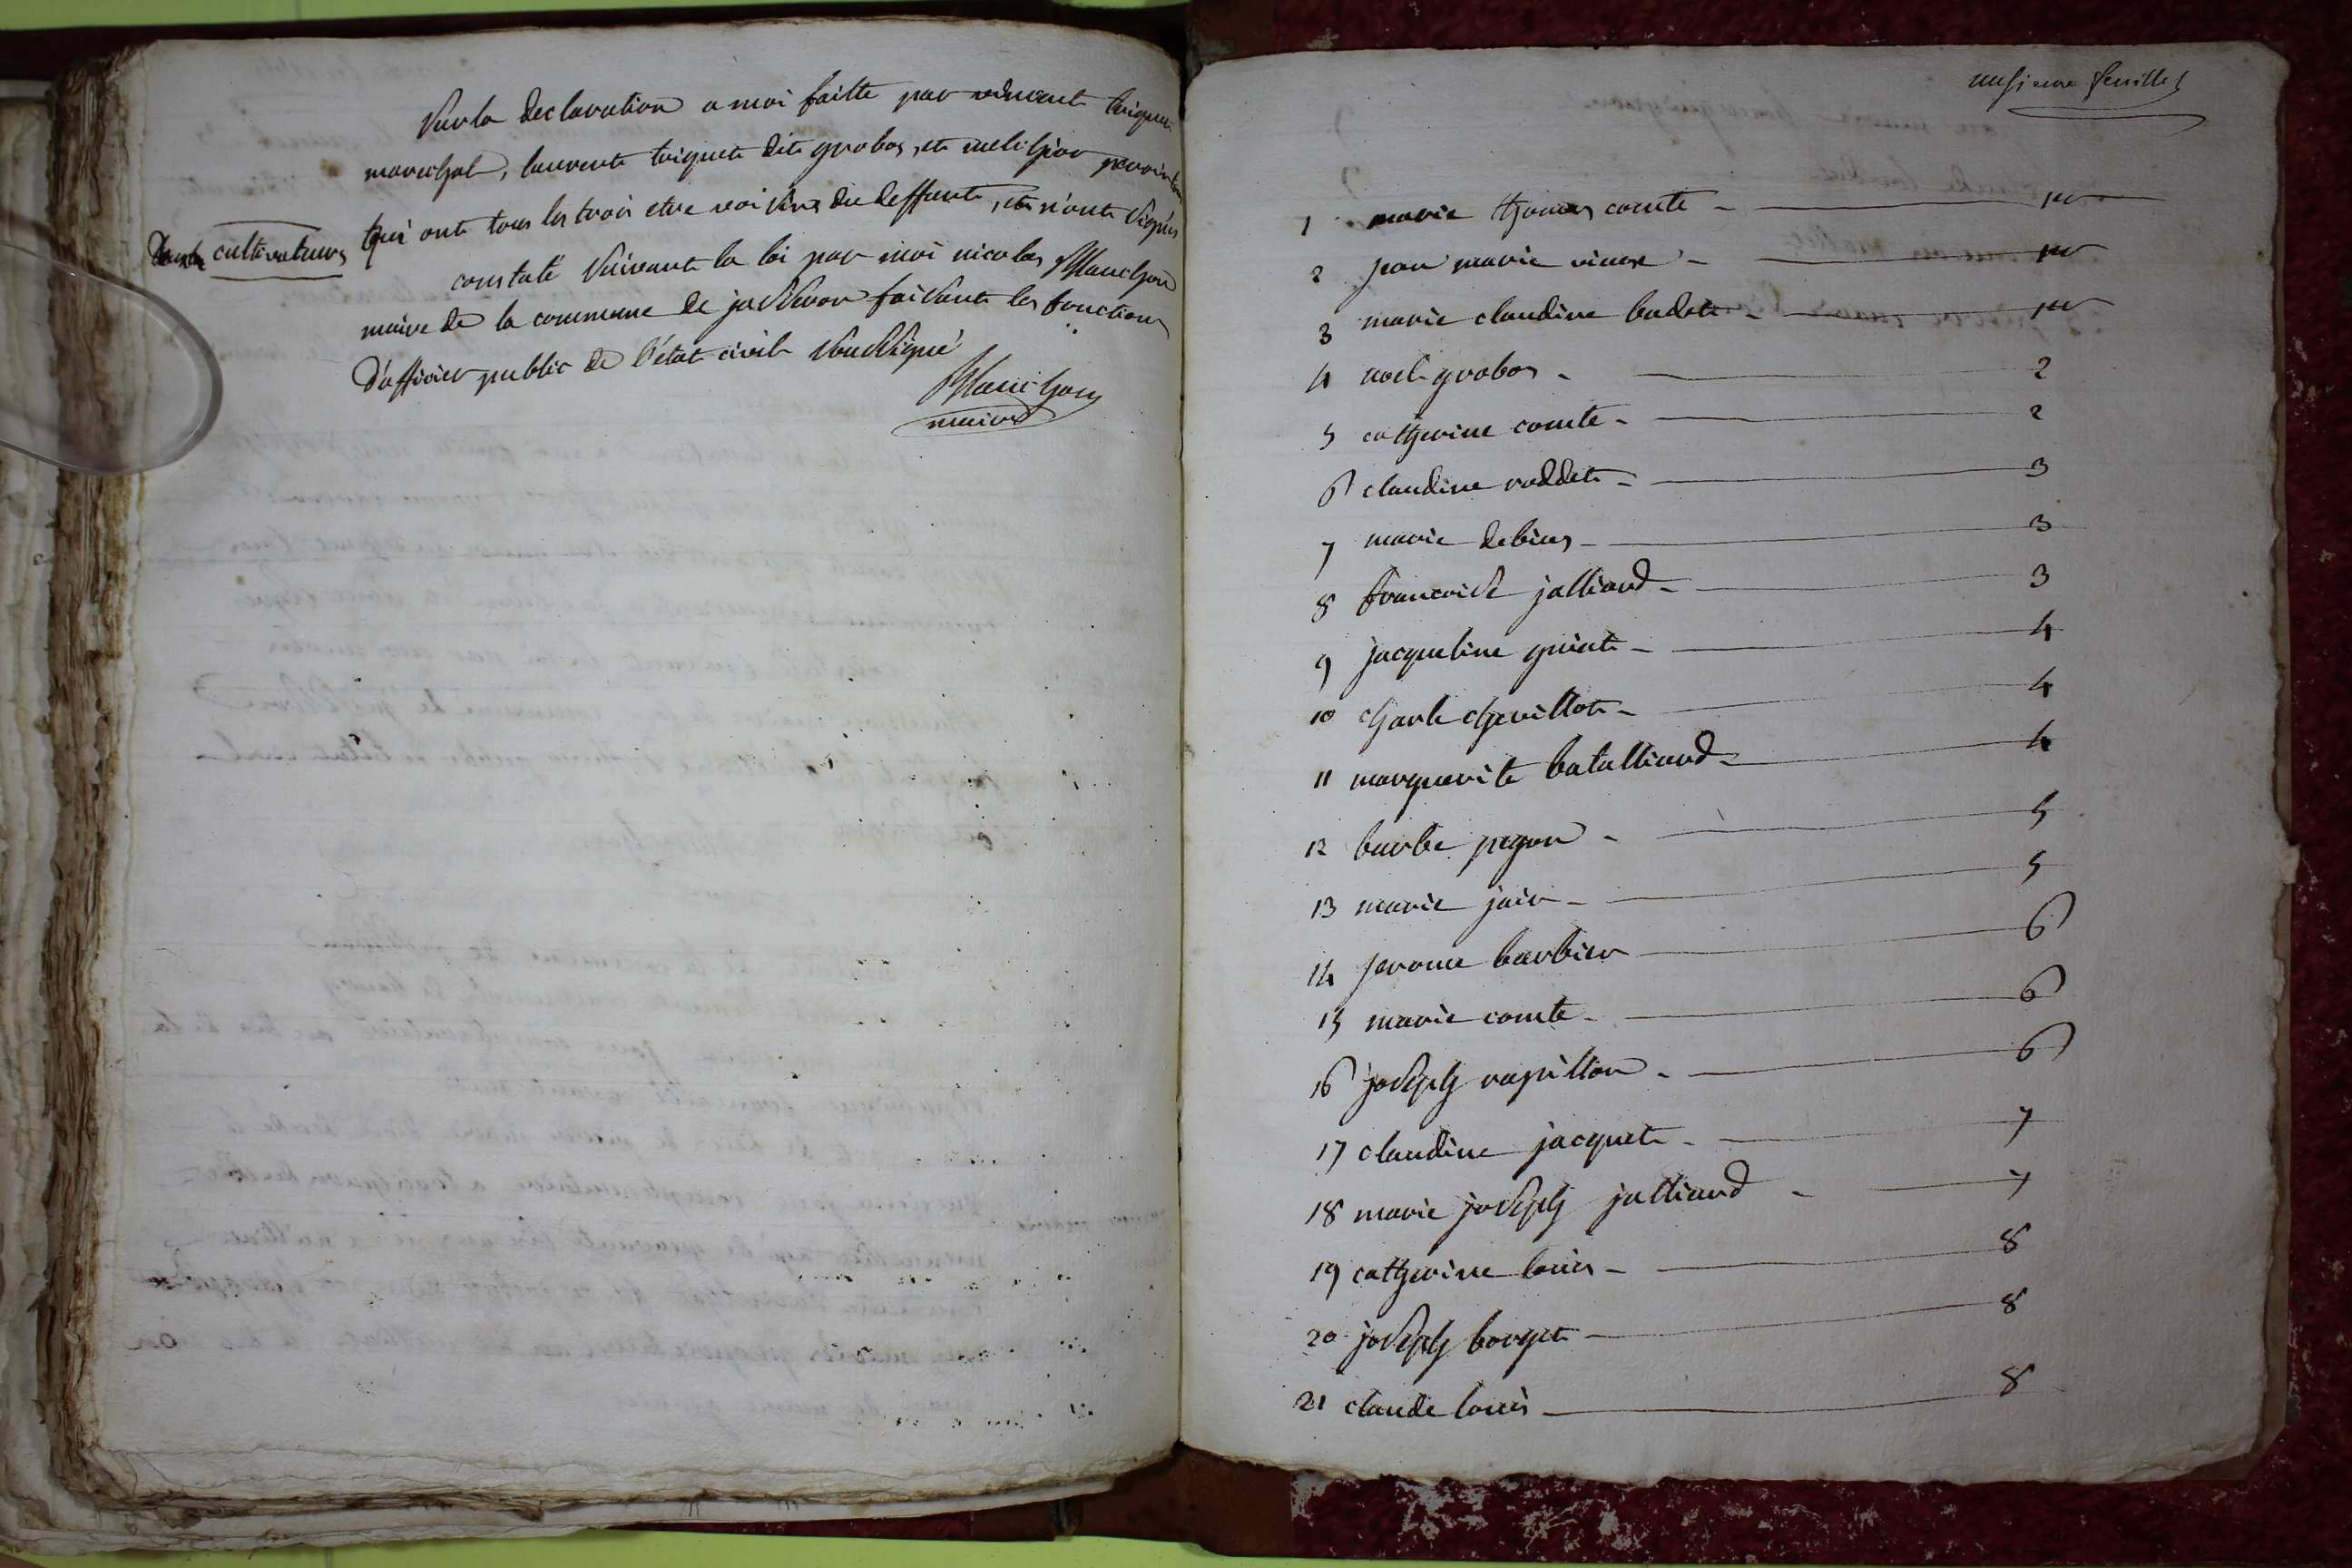 Sur la declaration a moi faitte par vincent triquet
marechal, laurent triquet dit grobos, et melchior
qui ont tous les trois etre voisins du deffunt, et n'ont signés
cultivateurs
constaté suivant la loi par moi nicolas Manchon
maire de la commune de faisant les fonctions
d'officier public de l'état civil soussigné
Manchon
maire
feuillet
1 marie thomas comte - per
2 jean marie - per
3 marie claudine badet - per
4 noel grobos - 2
5 catherine comte - 2
6 claudine roddet - 3
7 marie debias - 3
8 francoise jalliard - 3
9 jacqueline guiat - 4
10 charle chevillot - 4
11 marguerite batalliard - 4
12 barbe pegon - 5
13 marie jair - 5
14 jerome barbier 6
15 marie comte - 6
16 joseph rapillon - 6
17 claudine jacquet - 7
18 marie joseph jalliard - 7
19 catherine louis - 8
20 joseph borget - 8
21 claude louis - 8